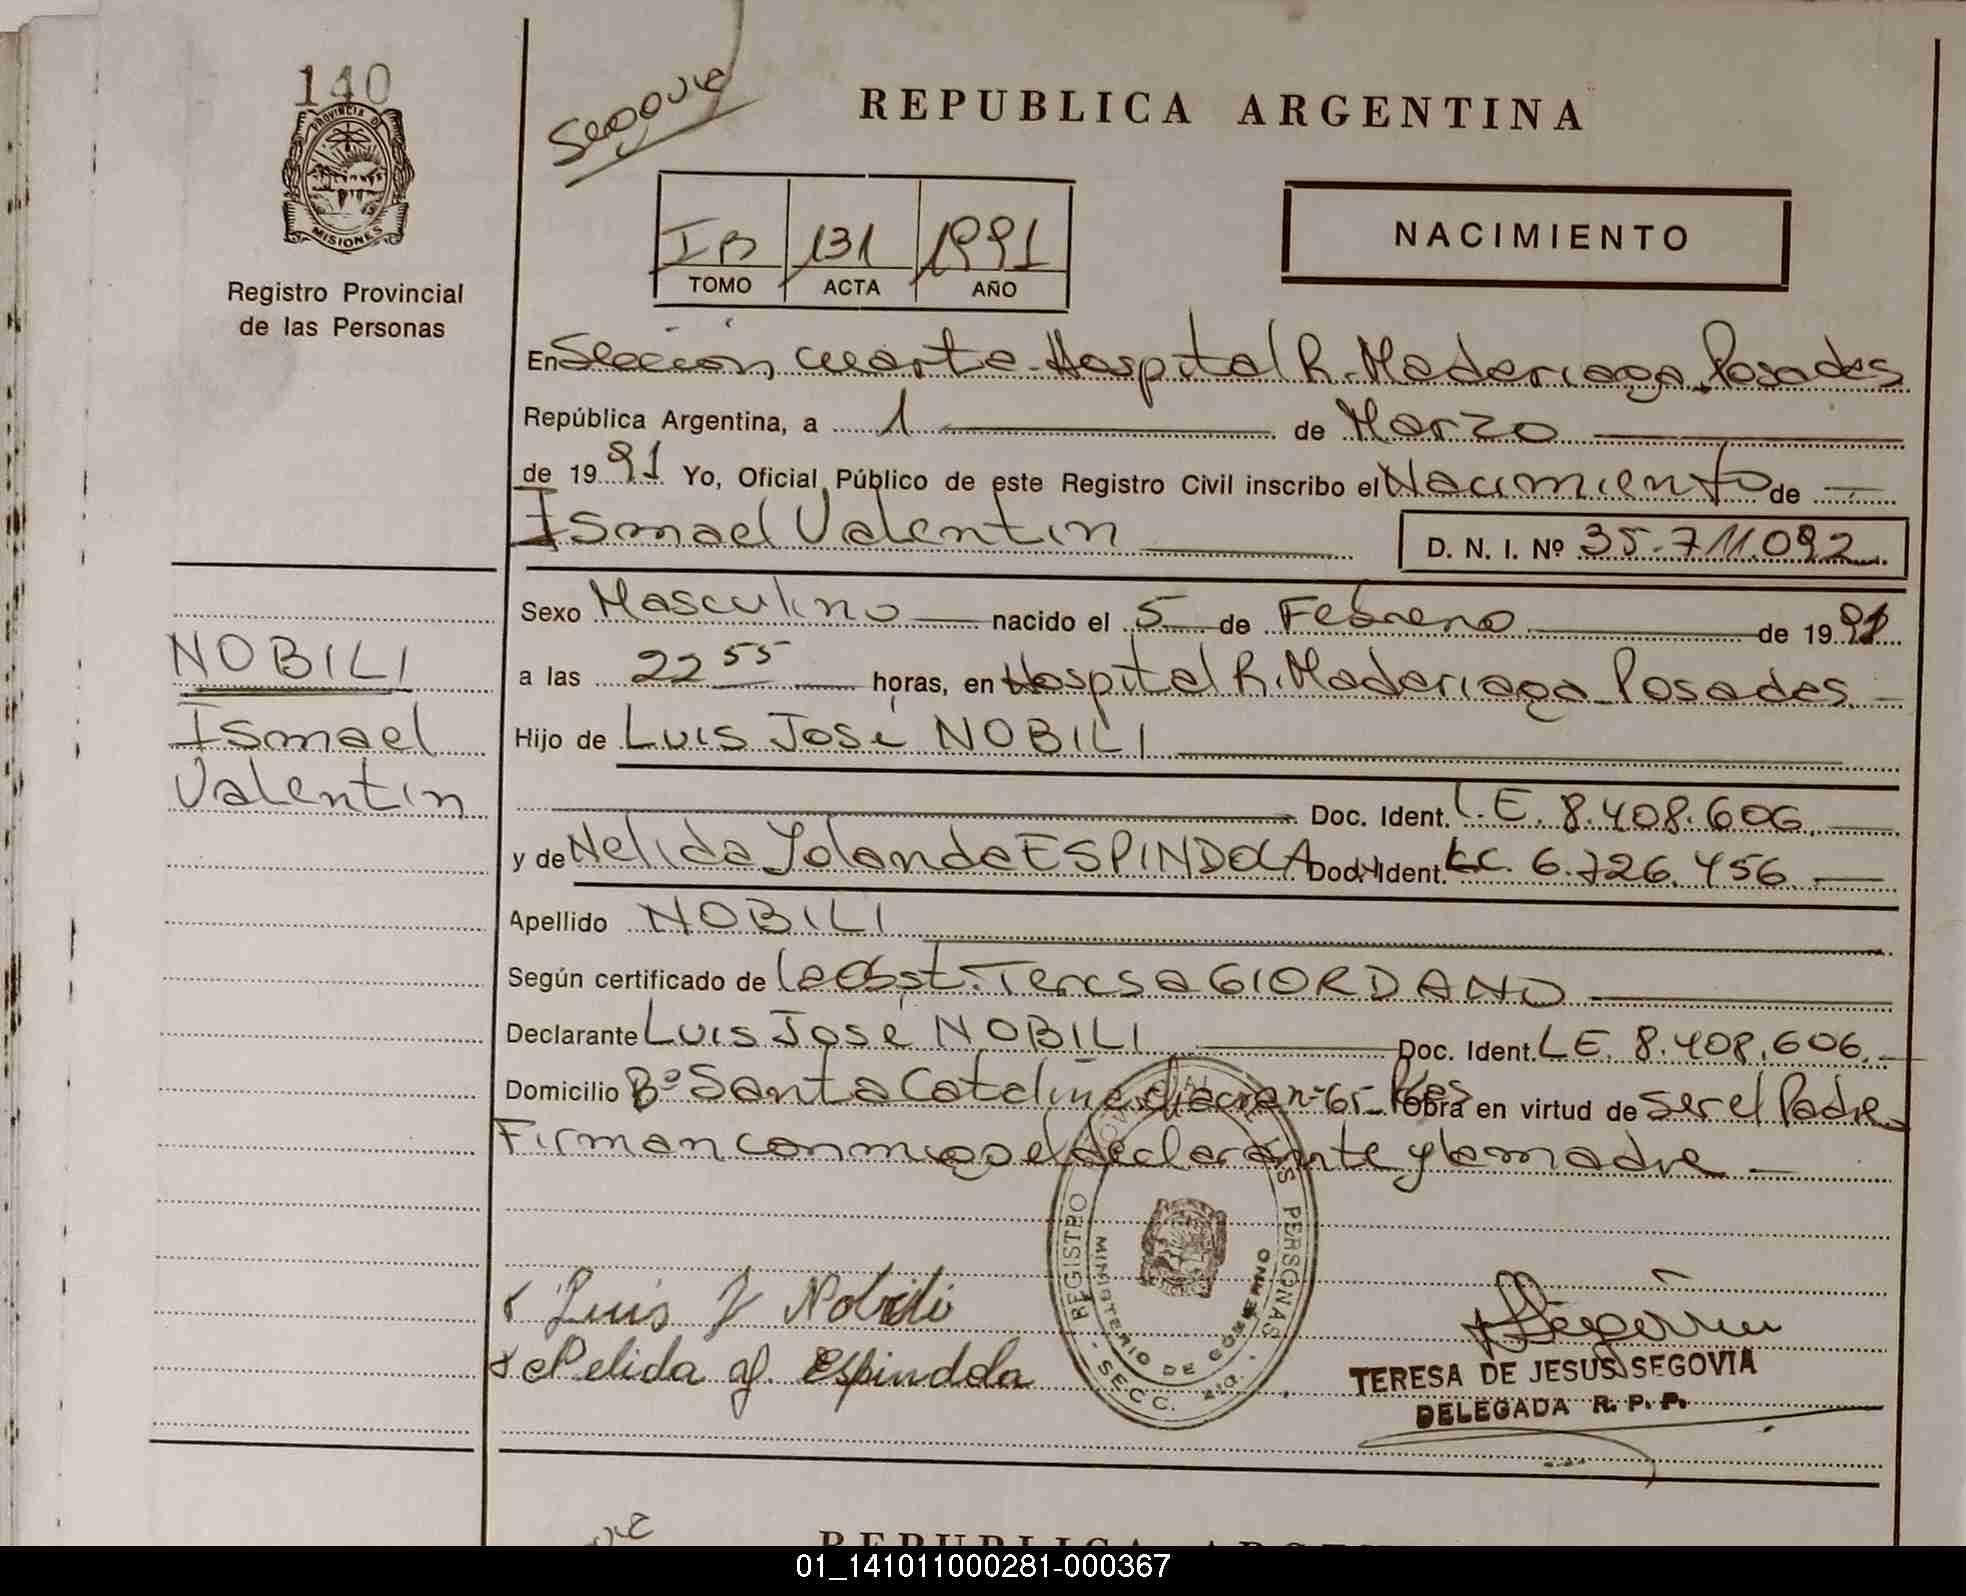 140
PROVINCIA D
MISIONES
Registro Provincial
de las Personas
Segovia
REPUBLICA ARGENTINA
IB 131 1991
TOMO ACTA AÑO
NACIMIENTO
En Sección cuarta - Hospital R. Madariaga - Posadas
República Argentina, a 1 de Marzo
de 1991 Yo, Oficial Público de este Registro Civil inscribo el Nacimiento de
Ismael Valentin D. N. I. Nº 35.711.092
Sexo Masculino nacido el 5 de Febrero de 1991
NOBILI
a las 22 55 horas, en Hospital R. Madariaga - Posadas.
Ismael
Hijo de Luis José NOBILI
Valentin
Doc. Ident. L.E. 8.408.606.
y de Nelida Yolanda ESPINDOLA Doc. Ident. LC. 6.726.456
Apellido NOBILI
Según certificado de la Obst. Teresa GIORDANO
Declarante Luis José NOBILI Doc. Ident. L.E. 8.408.606.
Domicilio Bº Santa Catalina chacra nº 65 - Pdas Obra en virtud de ser el Padre
Firman conmigo el declarante y la madre
REGISTRO PERSONAS
MINISTERIO DE GOBIERNO
SECC. 4ta.
Luis J Nobili
Nelida Y. Espindola
TERESA DE JESUS SEGOVIA
DELEGADA R. P. P.
REPUBLICA ARGE
01_141011000281-000367